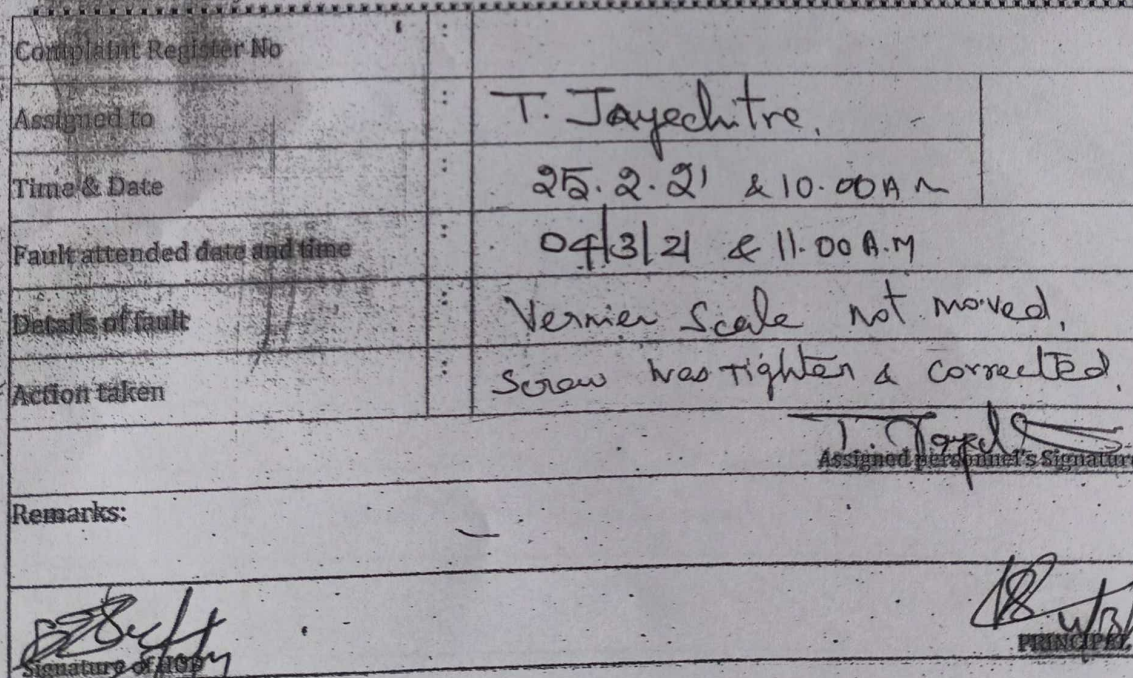 Complaint Register No :
Assigned to : T. Jayechitre,
Time & Date : 25.2.21 & 10.00 AM
Fault attended date and time : 04/3/21 & 11.00 A.M
Details of fault : Vernier Scale not moved,
Action taken : Screw was righten & corrected,
Assigned personnel's Signature
Remarks: —
Signature of HOD
PRINCIPAL